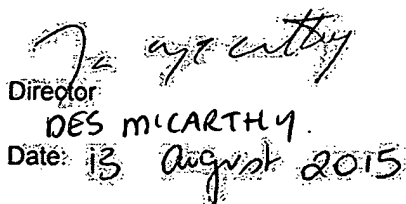 Director
DES McCARTHY.
Date: 13 August 2015